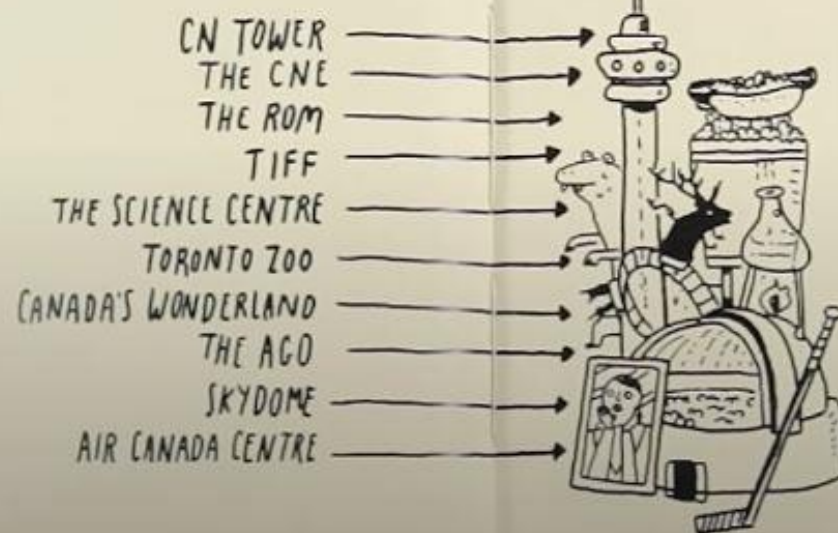 CN TOWER
THE CNE
THE ROM
TIFF
THE SCIENCE CENTRE
TORONTO ZOO
CANADA'S WONDERLAND
THE AGO
SKYDOME
AIR CANADA CENTRE